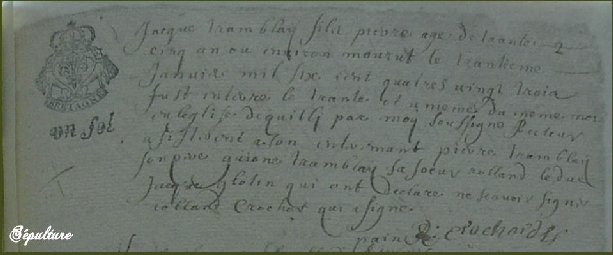 Jacque tramblay fils pierre age de trante
cinq an ou environ mourut le trantieme
Janvier mil six cent quatres vingt trois
fust enterre le trante et unieme du meme moi
en leglise de quilly par moy soussigne Recteur
BRETAGNE
un sol
assisterent a son enterrement pierre tramblay
son pere tramblay sa soeur rolland leduc
Jacque glotin qui ont declare ne scavoir signer
rolland Crochar qui signe
R: Crochard
Sépulture